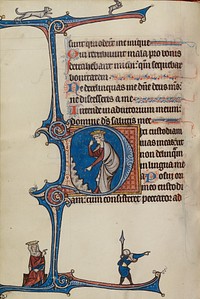 sunt qui oderunt me inique
Qui retribuunt mala pro bonis
detrahebant michi qm sequebar
bonitatem
Ne derelinquas me dñe deus ms
ne discesseris a me
Intende in adiutorium meum
domine ds salutis mee
Dixi custodiam
uias meas ut
non delinquam
in lingua mea
Posui ori
meo custodi
am cum consisteret peccator ad